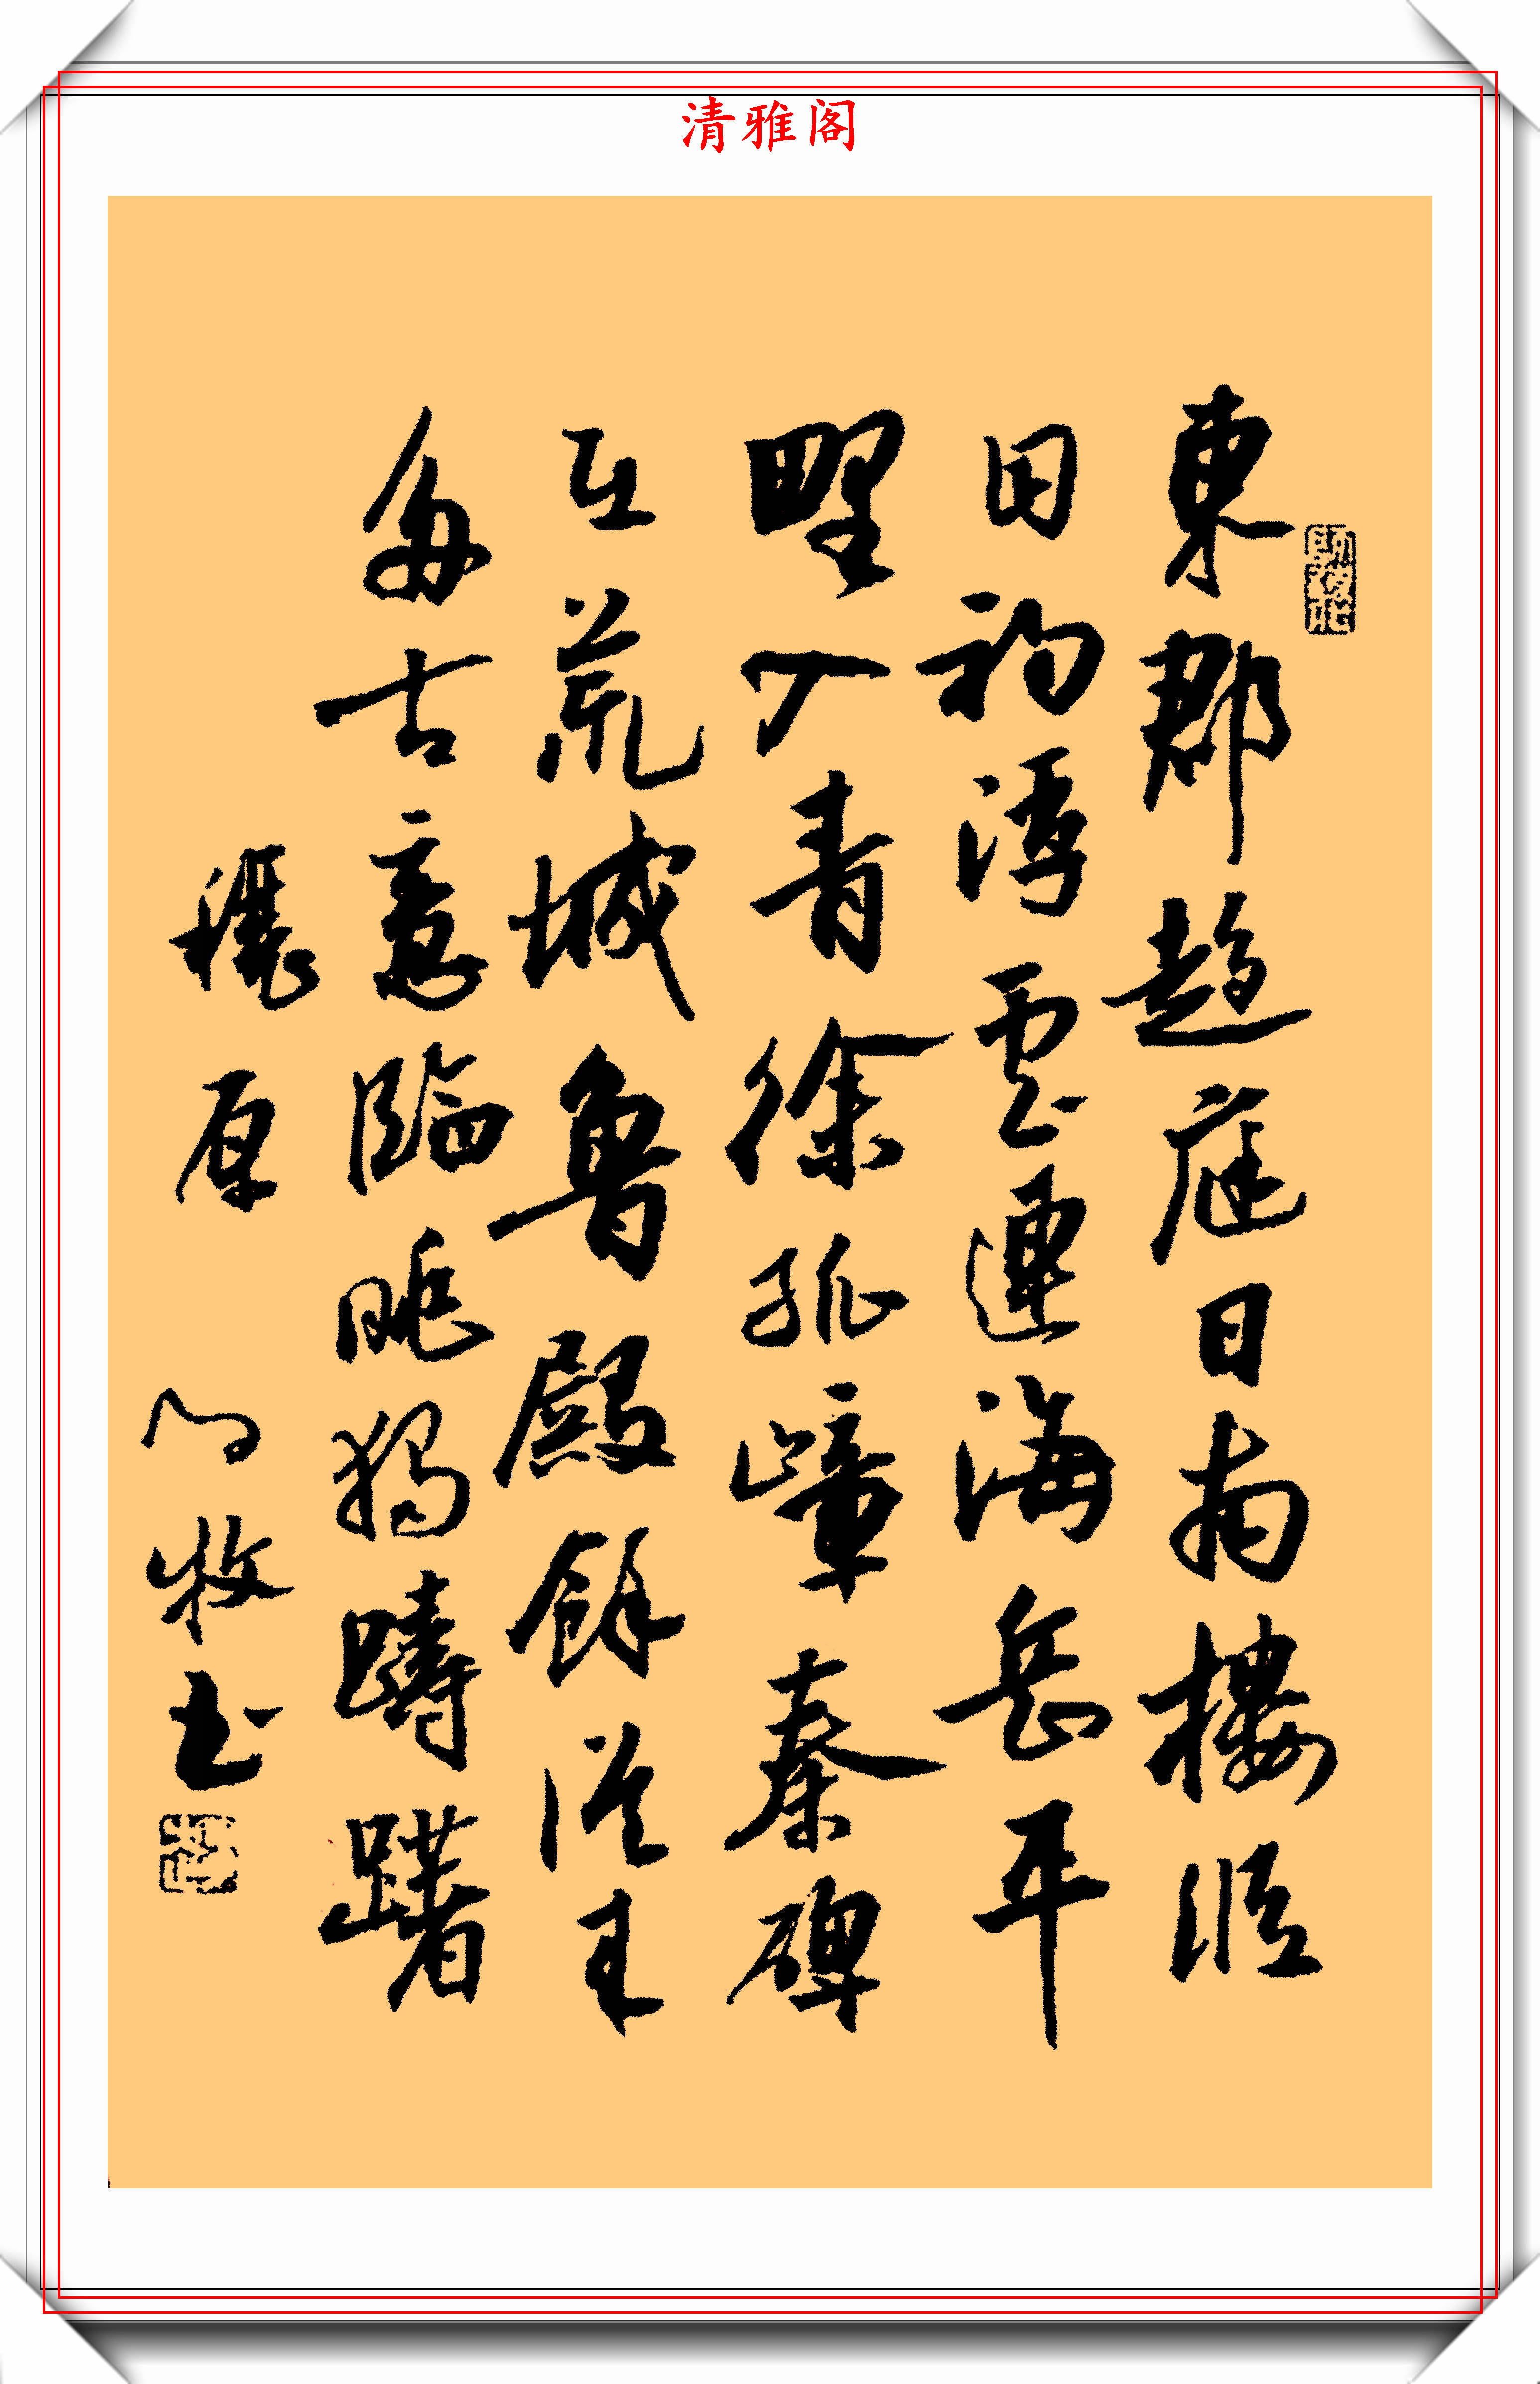 清雅阁
東郡趨庭日南樓縱
目初浮雲連海岳平
野入青徐孤嶂秦碑
在荒城魯殿餘從来
多古意臨眺獨躊躇
原 牧书